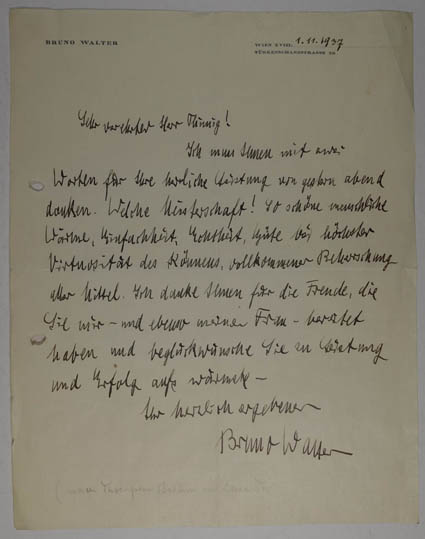 BRUNO WALTER
WIEN XVIII. 1.11.1937
TÜRKENSCHANZSTRASSE
Sehr verehrter Herr Thimig!
Ich muss Ihnen mit zwei
Worten für Ihre herrliche Leistung von gestern abend
danken. Welche Meisterschaft! So schöne menschliche
Wärme, Einfachheit, Echtheit, Güte bei höchster
Virtuosität des Könnens, vollkommener Beherrschung
aller Mittel. Ich danke Ihnen für die Freude, die
Sie mir – und ebenso meiner Frau – bereitet
haben und beglückwünsche Sie zu Leistung
und Erfolg aufs wärmste –
Ihr herzlich ergebener
Bruno Walter